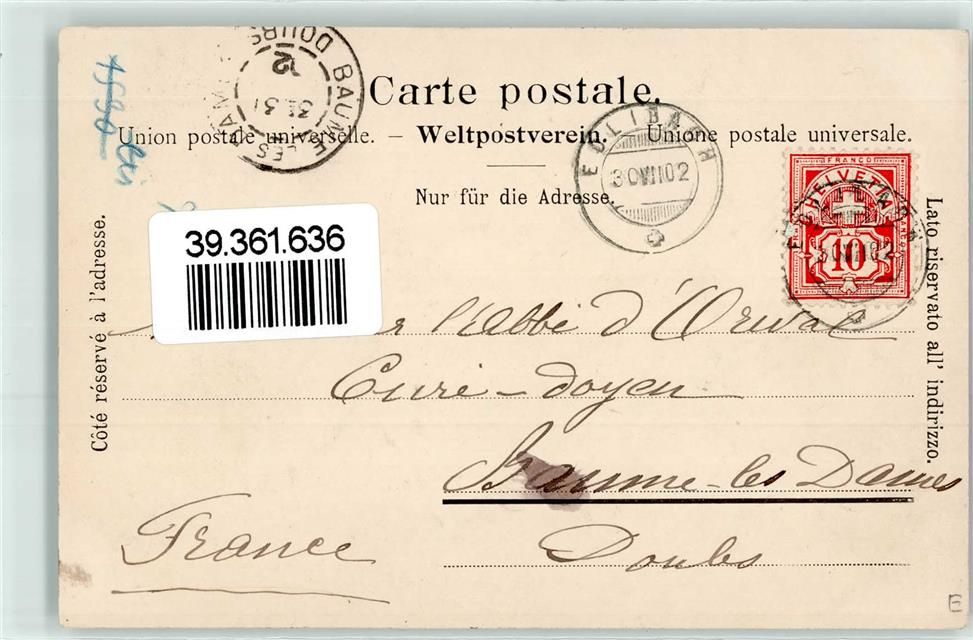 Carte postale.
Union postale universelle. – Weltpostverein. – Unione postale universale.
Nur für die Adresse.
BAUME LES DAMES
DOURS
31
12
EDLIBACH
30 VII 02
FRANCO
HELVETIA
10
30 VII 02
39.361.636
Côté réservé à l'adresse.
Lato riservato all' indirizzo.
l'Abbé d'Orival
Curé-doyen
Baume-les Dames
Doubs
France
E